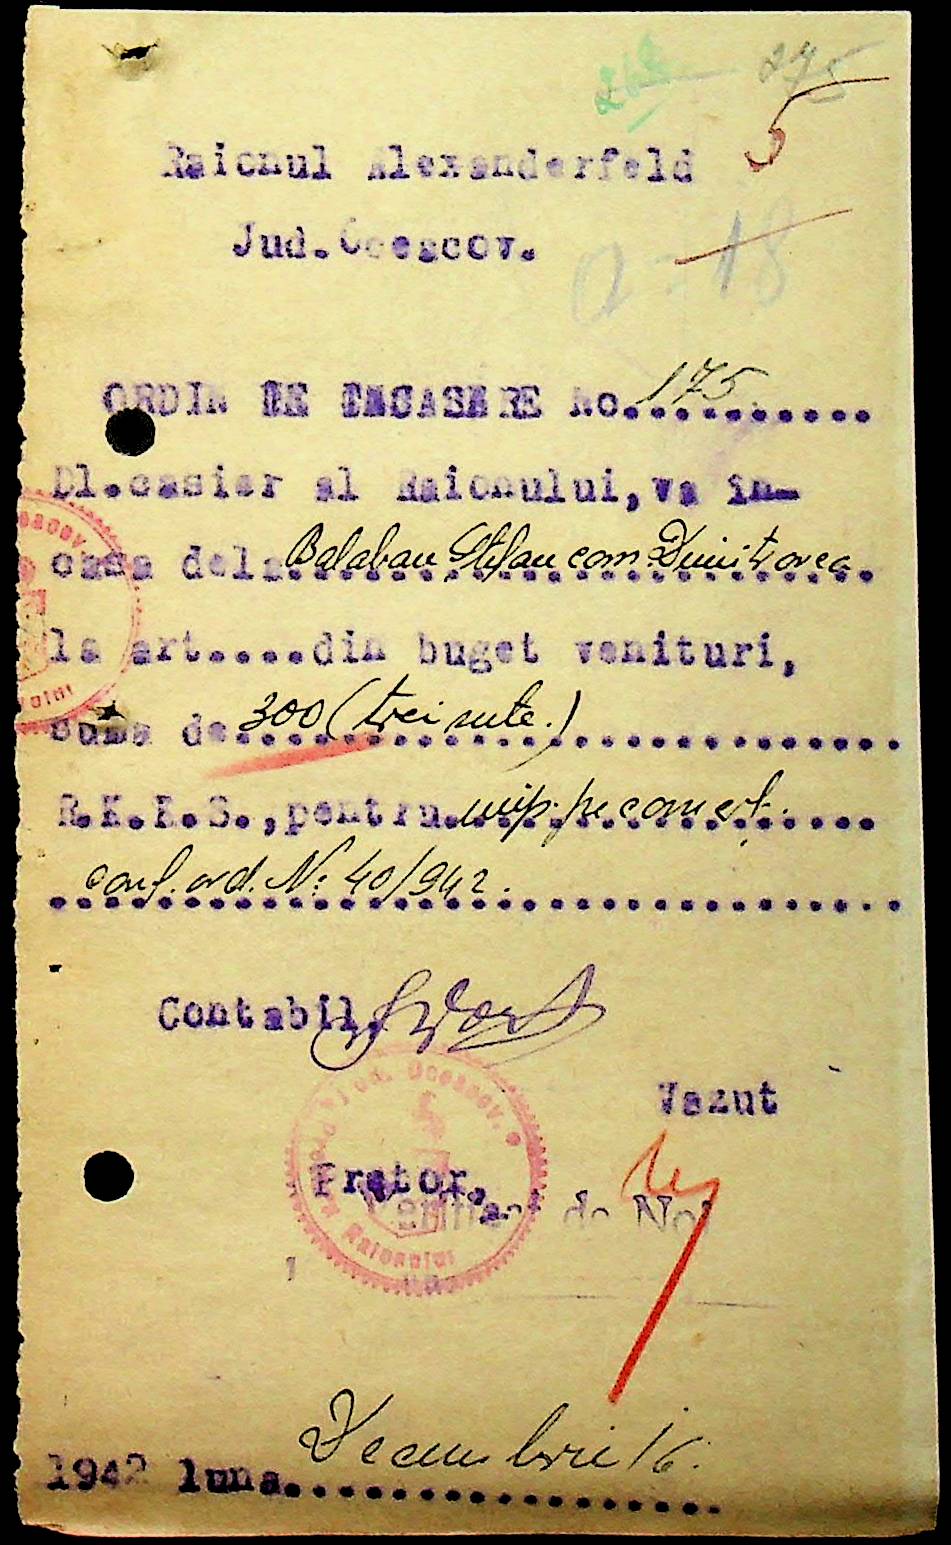 262 275
5
Raionul Alexanderfeld
Jud.Oceacov.
18
ORDIN DE INCASARE No. 175
Dl.casier al Raionului, va in-
casa dela Balaban Stefan com. Dimitrovca
la art....din buget venituri,
suma de 300 (trei sute.)
R.K.K.S.,pentru imp. pe comert.
conf. ord. N: 40/942.
Contabil,
Jud. Oceacov.
Vazut
Pretor,
de No
Raionului
1942 luna Decembrie 16.